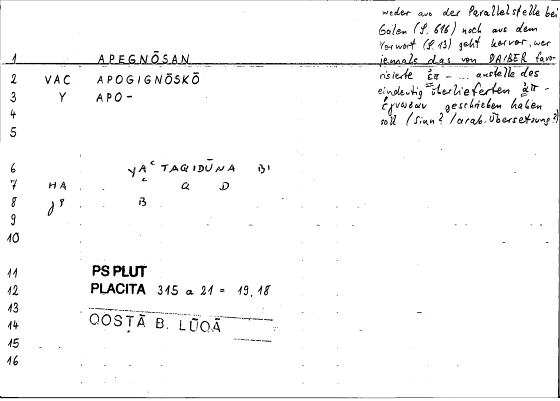 weder aus der Parallelstelle bei
Galen (S. 616) noch aus dem
Vorwort (S. 13) geht hervor, wer
jemals das von DAIBER favo-
risierte ἐπ- ... anstelle des
eindeutig überlieferten ἀπ-
έγνωσαν geschrieben haben
soll (Sinn? / arab. Übersetzung?)
1 APEGNŌSAN
2 VAC APOGIGNŌSKŌ
3 Y APO-
4
5
6 YAᶜTAQIDŪNA BI
7 HA ᶜ Q D
8 B
9
10
11 PS PLUT
12 PLACITA 315 a 21 = 19,18
13
14 QOSṬĀ B. LŪQĀ
15
16